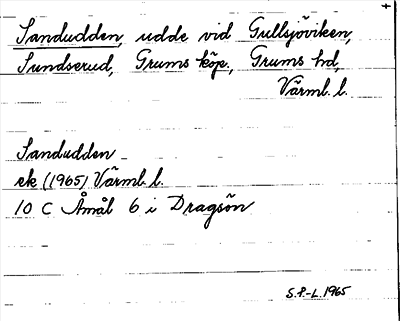 +
Sandudden, udde vid Gullsjöviken,
Sundserud, Grums köp., Grums hd,
Värml. l.
Sandudden
ek (1965) Värml. l.
10 C Åmål 6 i Dragsön
S.P.-L. 1965